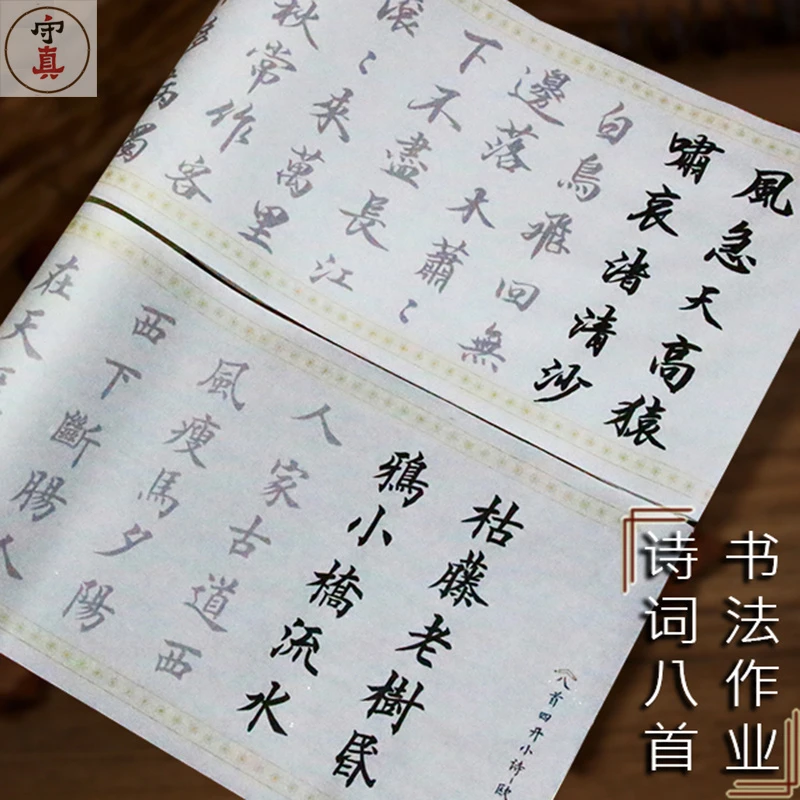 守真
風急天高猿
嘯哀渚清沙
白鳥飛回無
邊落木蕭〻
下不盡長江
滾〻來萬里
秋常作客
病獨
枯藤老樹昏
鴉小橋流水
人家古道西
風瘦馬夕陽
西下斷腸人
在天
《八首四开小诗~欧
书法作业
诗词八首